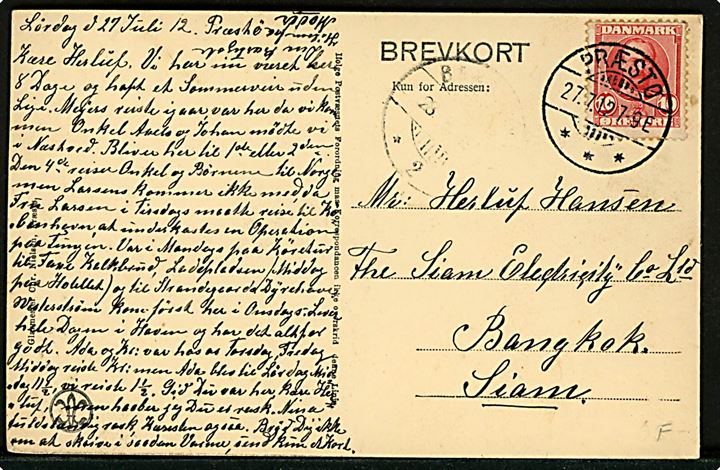 Lørdag d 27 Juli 12. Præstø
Kære Herluf. Vi har nu været her
8 Dage og haft et Sommerveir uden
Lige. Mejers reiste igaar, var her da vi kom
men Onkel Aage og Johan mødte vi
i Nestved. Bliver her til 1ste eller 2den
Den 4de reiser Onkel og Børnene til Norge
men Larsens kommer ikke med da
Fru Larsen i Tirsdags maatte reise til Kø-
benhavn, at underkastes en Operation
paa Tungen. Var i Mandags paa Køretur
til Faxe Kalkbrud, Ladepladsen (Middag
paa Hotellet) og til Strandegaards Dyrehave
kom først her i Onsdags.
hele Dagen i Haven og har det altfor
godt. Ada og Kr: var hos os Torsdag, Fredag
Middag reiste Kr: men Ada blev til Lørdag Mid-
dag 11½, vi reiste 1½. Gid Du var her, kære Her-
luf, men haaber jeg Du er rask.
rask, Karsten ogsaa. Bryd Dig ikke
om at skrive i saadan Varme, send kun et Kort.
BREVKORT
Kun for Adressen:
DANMARK
10 10
ØRE
PRÆSTØ
27.7.12 7-9 E
B
2
Mr: Herluf Hansen
The Siam Electricity Co Ltd
Bangkok.
Siam.
F-